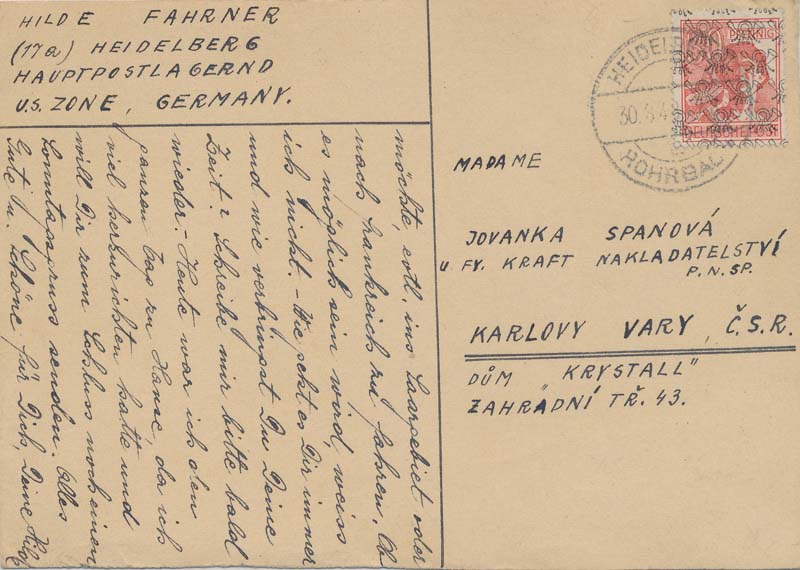 HILDE FAHRNER
(17a) HEIDELBERG
HAUPTPOSTLAGERND
U.S. ZONE, GERMANY.
möchte, evtl. ins Saargebiet oder
nach Frankreich zu fahren. Ob
es möglich sein wird, weiss
ich nicht. - Wie geht es Dir immer
und wie verbringst Du Deine
Zeit? Schreibe mir bitte bald
wieder. - Heute war ich den
ganzen Tag zu Hause, da ich
viel herzurichten hatte und
will Dir zum Schluss noch einen
Sonntagsgruss senden. Alles
Gute u. Schöne für Dich, Deine Hilde
HEIDELB
30.
ROHRBA
PFENNIG
DEUTSCHE POST
MADAME
JOVANKA SPANOVÁ
U FY. KRAFT NAKLADATELSTVÍ
P.N.SP.
KARLOVY VARY, Č.S.R.
DŮM „KRYSTALL"
ZAHRADNÍ TŘ. 43.